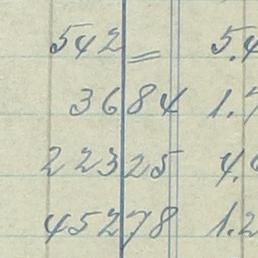 542 = 5.4
3684 1.7
22325 4.
45278 1.2